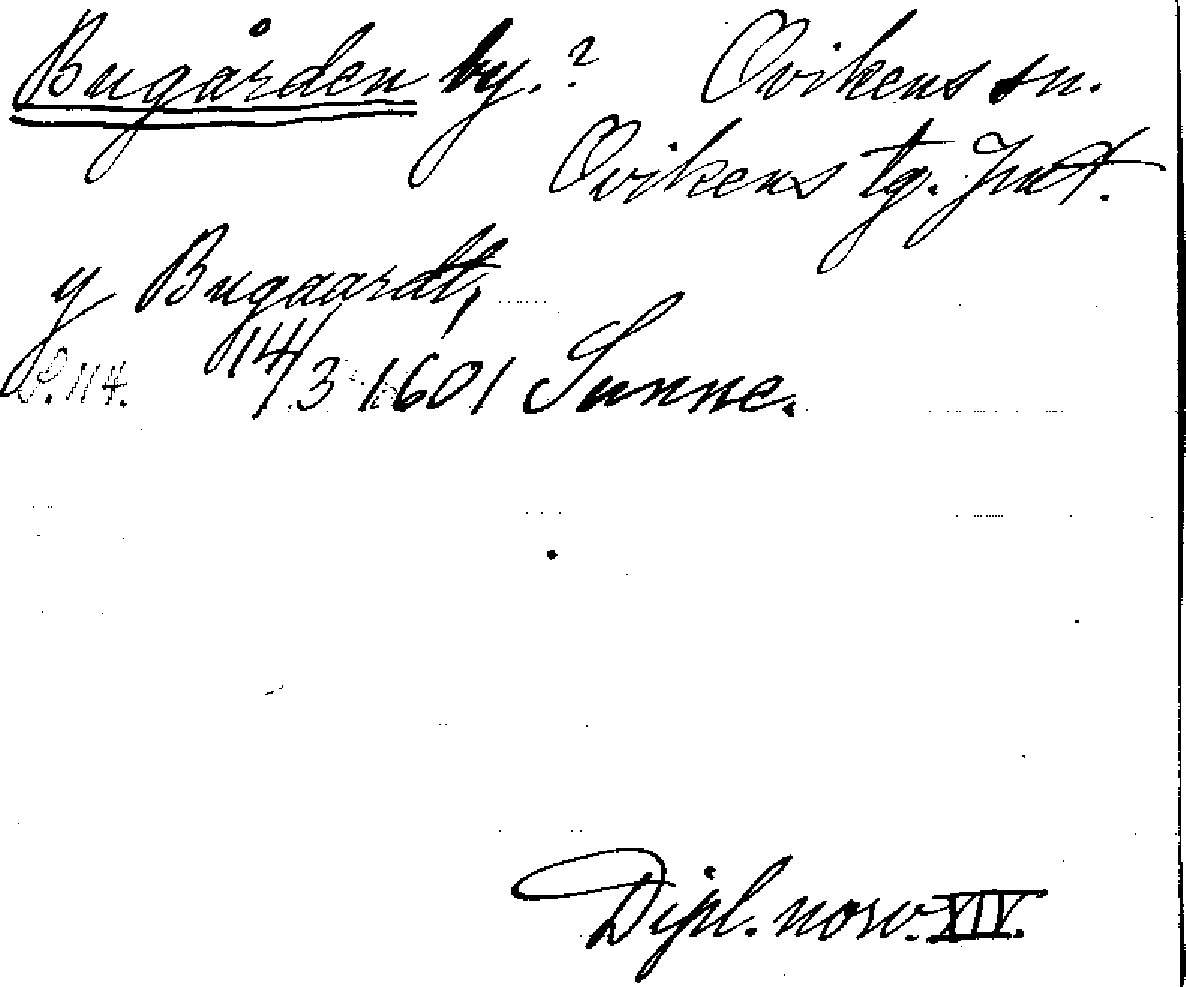 Bugården by.? Ovikens sn.
Ovikens tg. Jmt.
y Bugaardt,
S. 114. 14/3 1601 Sunne.
Dipl. norv. XIV.